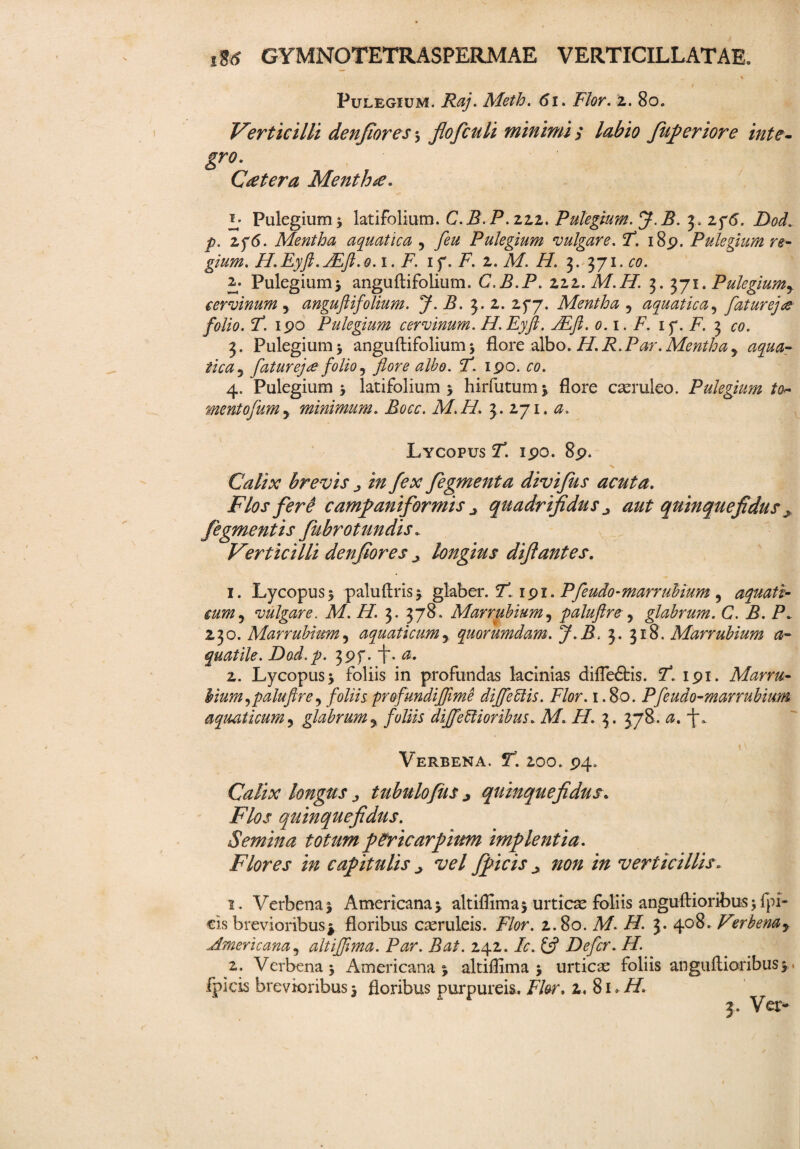 186 GYMNOTETRASPERMAE VERTICILLATAE.
PULEGIUM. Raj. Meth. 61. Flor. 2. 80.
Verticilli denſiores; floſculi minimi; labio ſuperiore inte-
gro.
Cætera Menthæ.
1. Pulegium; latifolium. C.B.P. 222. Pulegium. J.B. 3. 256. Dod.
p. 256. Mentha aquatica, ſeu Pulegium vulgare. T. 189. Pulegium re-
gium. H.Eyſt. Æſt. o. 1. F. 15. F. 2. M. H. 3. 371. co.
2. Pulegium; anguſtifolium. C.B.P. 222. M.H. 3. 371. Pulegium,
cervinum, anguſtifolium. J. B. 3. 2. 257. Mentha, aquatica, ſaturejæ
folio. T. 190 Pulegium cervinum. H. Eyſt. Æſt. o. 1. F. 15. F. 3 co.
3. Pulegium; anguſtifolium; flore albo. H.R.Par. Mentha, aqua-
tica, ſaturejæ folio, flore albo. T. 190. co.
4. Pulegium; latifolium; hirſutum; flore cæruleo. Pulegium to-
mentoſum, minimum. Bocc. M.H. 3. 271. a.
LYCOPUS T. 190. 89.
Calix brevis, in ſex ſegmenta diviſus acuta.
Flos ferè campaniformis, quadrifidus, aut quinquefidus,
ſegmentis ſubrotundis.
Verticilli denſiores, longius diſtantes.
1. Lycopus; paluſtris; glaber. T. 191. Pſeudo-marrubium, aquati-
cum, vulgare. M. H. 3. 378. Marrubium, paluſtre, glabrum. C. B. P.
230. Marrubium, aquaticum, quorumdam. J.B. 3. 318. Marrubium a-
quatile. Dod. p. 395. †. a.
2. Lycopus; foliis in profundas lacinias diſſectis. T. 191. Marru-
bium, paluſtre, foliis profundiſſimè diſſectis. Flor. 1. 80. Pſeudo-marrubium
aquaticum, glabrum, foliis diſſectioribus. M. H. 3. 378. a. †.
VERBENA. T. 200. 94.
Calix longus, tubuloſus, quinquefidus.
Flos quinquefidus.
Semina totum pericarpium implentia.
Flores in capitulis, vel ſpicis, non in verticillis.
1. Verbena; Americana; altiſſima; urticæ foliis anguſtioribus; ſpi-
cis brevioribus; floribus cæruleis. Flor. 2. 80. M. H. 3. 408. Verbena,
Americana, altiſſima. Par. Bat. 242. Ic. & Deſcr. H.
2. Verbena; Americana; altiſſima; urticæ foliis anguſtioribus;
ſpicis brevioribus; floribus purpureis. Flor. 2. 81. H.
3. Ver-